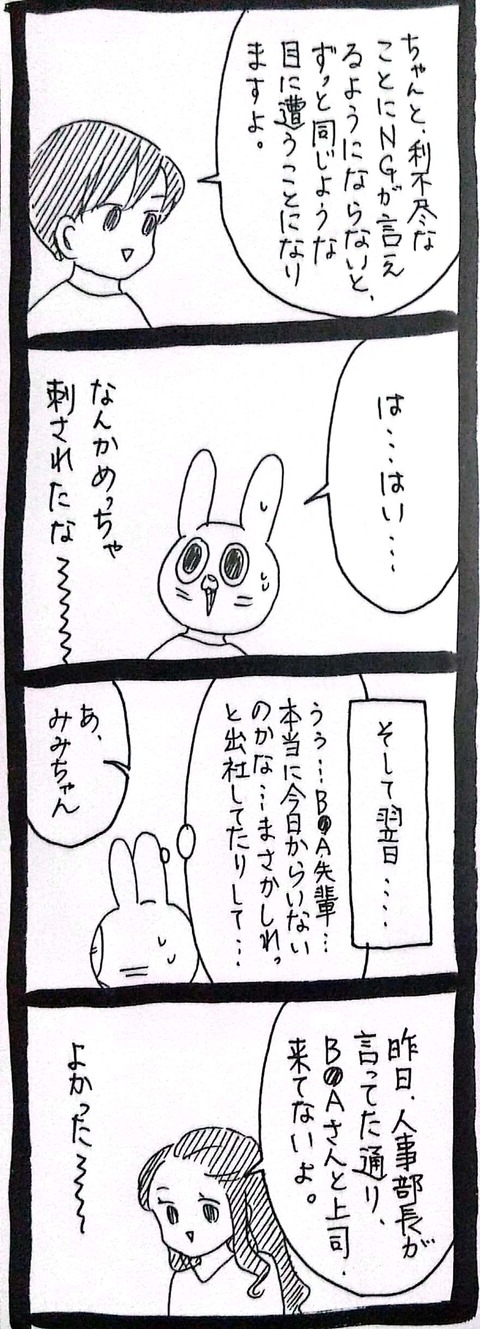 ちゃんと、利不尽な
ことにNGが言え
るようにならないと、
ずっと同じような
目に遭うことになり
ますよ。
は...はい...
なんかめっちゃ
刺されたな〜〜〜
そして翌日.....
うぅ...B●A先輩...
本当に今日からいない
のかな...まさかしれっ
と出社してたりして...
あ、
みみちゃん
昨日、人事部長が
言ってた通り、
B●Aさんと上司、
来てないよ。
よかった〜〜〜